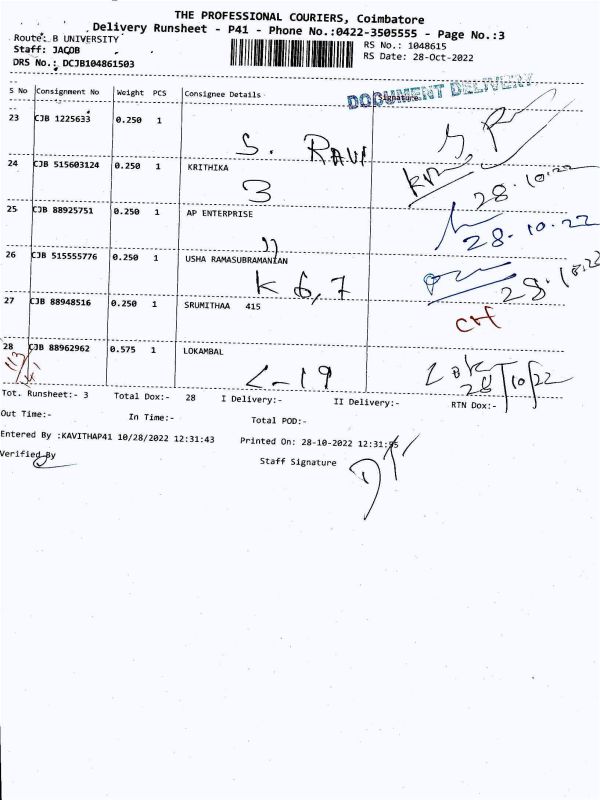 THE PROFESSIONAL COURIERS, Coimbatore
Delivery Runsheet - P41 - Phone No.:0422-3505555 - Page No.:3
Route: B UNIVERSITY RS No.: 1048615
Staff: JACOB RS Date: 28-Oct-2022
DRS No.: DCJB104861503
S No Consignment No Weight PCS Consignee Details Signature
DOCUMENT DELIVERY
23 CJB 1225633 0.250 1
S. RAVI
24 CJB 515603124 0.250 1 KRITHIKA
3 28.10.22
25 CJB 88925751 0.250 1 AP ENTERPRISE
11 28.10.22
26 CJB 515555776 0.250 1 USHA RAMASUBRAMANIAN
K 6,7 28.10.22
27 CJB 88948516 0.250 1 SRUMITHAA 415
28 CJB 88962962 0.575 1 LOKAMBAL
L-19 Lok
28/10/22
Tot. Runsheet:- 3 Total Dox:- 28 I Delivery:- II Delivery:- RTN Dox:-
Out Time:- In Time:- Total POD:-
Entered By :KAVITHAP41 10/28/2022 12:31:43 Printed On: 28-10-2022 12:31:55
Verified By Staff Signature